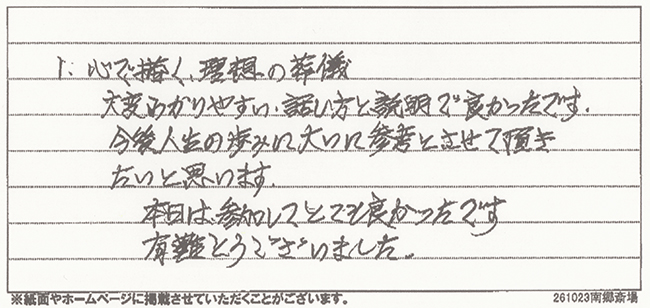 1. 心で描く、理想の葬儀
大変わかりやすい、話し方と説明で良かったです。
今後人生の歩みに大いに参考とさせて頂き
たいと思います。
本日は、参加してとても良かったです
有難とうございました。
※紙面やホームページに掲載させていただくことがございます。 261023南郷斎場